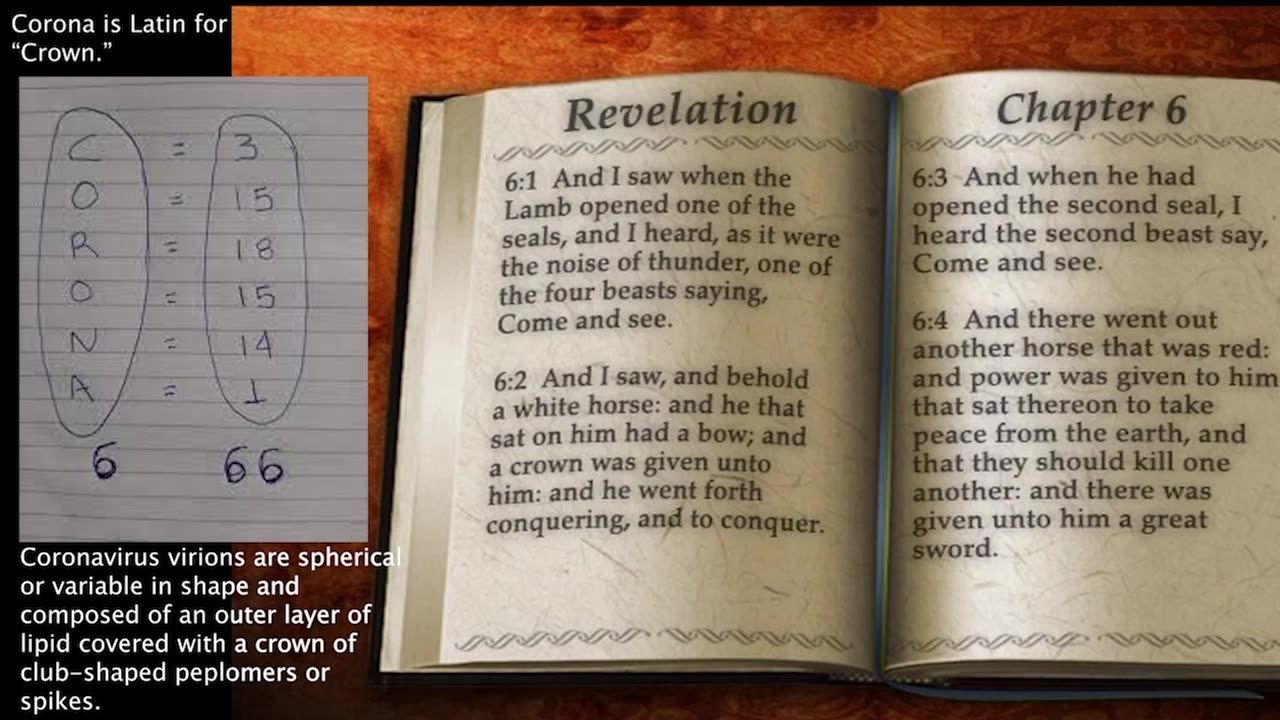 Corona is Latin for
“Crown.”
C = 3
O = 15
R = 18
O = 15
N = 14
A = 1
6 66
Coronavirus virions are spherical
or variable in shape and
composed of an outer layer of
lipid covered with a crown of
club-shaped peplomers or
spikes.
Revelation
6:1 And I saw when the
Lamb opened one of the
seals, and I heard, as it were
the noise of thunder, one of
the four beasts saying,
Come and see.
6:2 And I saw, and behold
a white horse: and he that
sat on him had a bow; and
a crown was given unto
him: and he went forth
conquering, and to conquer.
Chapter 6
6:3 And when he had
opened the second seal, I
heard the second beast say,
Come and see.
6:4 And there went out
another horse that was red:
and power was given to him
that sat thereon to take
peace from the earth, and
that they should kill one
another: and there was
given unto him a great
sword.